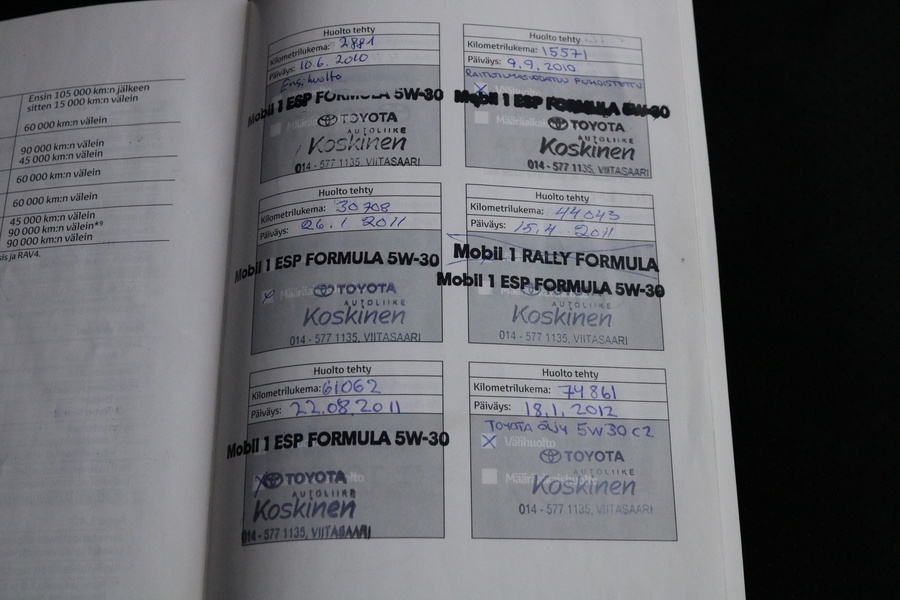 Ensin 105 000 km:n jälkeen
sitten 15 000 km:n välein
60 000 km:n välein
90 000 km:n välein
45 000 km:n välein
60 000 km:n välein
60 000 km:n välein
45 000 km:n välein
90 000 km:n välein*9
90 000 km:n välein
sis ja RAV4.
Huolto tehty
Kilometrilukema: 2881
Päiväys: 10.6. 2010
Ensihuolto
Mobil 1 ESP FORMULA 5W-30
TOYOTA
AUTOLIIKE
Koskinen
014 - 577 1135, VIITASAARI
Huolto tehty
Kilometrilukema: 15571
Päiväys: 9.9.2010
RAITISILMASUODATIN PUHDISTETTU
Mobil 1 ESP FORMULA 5W-30
TOYOTA
AUTOLIIKE
Koskinen
014 - 577 1135, VIITASAARI
Huolto tehty
Kilometrilukema: 30708
Päiväys: 26.1 2011
Mobil 1 ESP FORMULA 5W-30
TOYOTA
AUTOLIIKE
Koskinen
014 - 577 1135, VIITASAARI
Huolto tehty
Kilometrilukema: 44043
Päiväys: 15.4 2011
Mobil 1 RALLY FORMULA
Mobil 1 ESP FORMULA 5W-30
TOYOTA
AUTOLIIKE
Koskinen
014 - 577 1135, VIITASAARI
Huolto tehty
Kilometrilukema: 61062
Päiväys: 22.08.2011
Mobil 1 ESP FORMULA 5W-30
TOYOTA
AUTOLIIKE
Koskinen
014 - 577 1135, VIITASAARI
Huolto tehty
Kilometrilukema: 74861
Päiväys: 18.1.2012
TOYOTA ÖLJY 5W30 C2
Välihuolto
TOYOTA
AUTOLIIKE
Määräaikaishuolto
Koskinen
014 - 577 1135, VIITASAARI